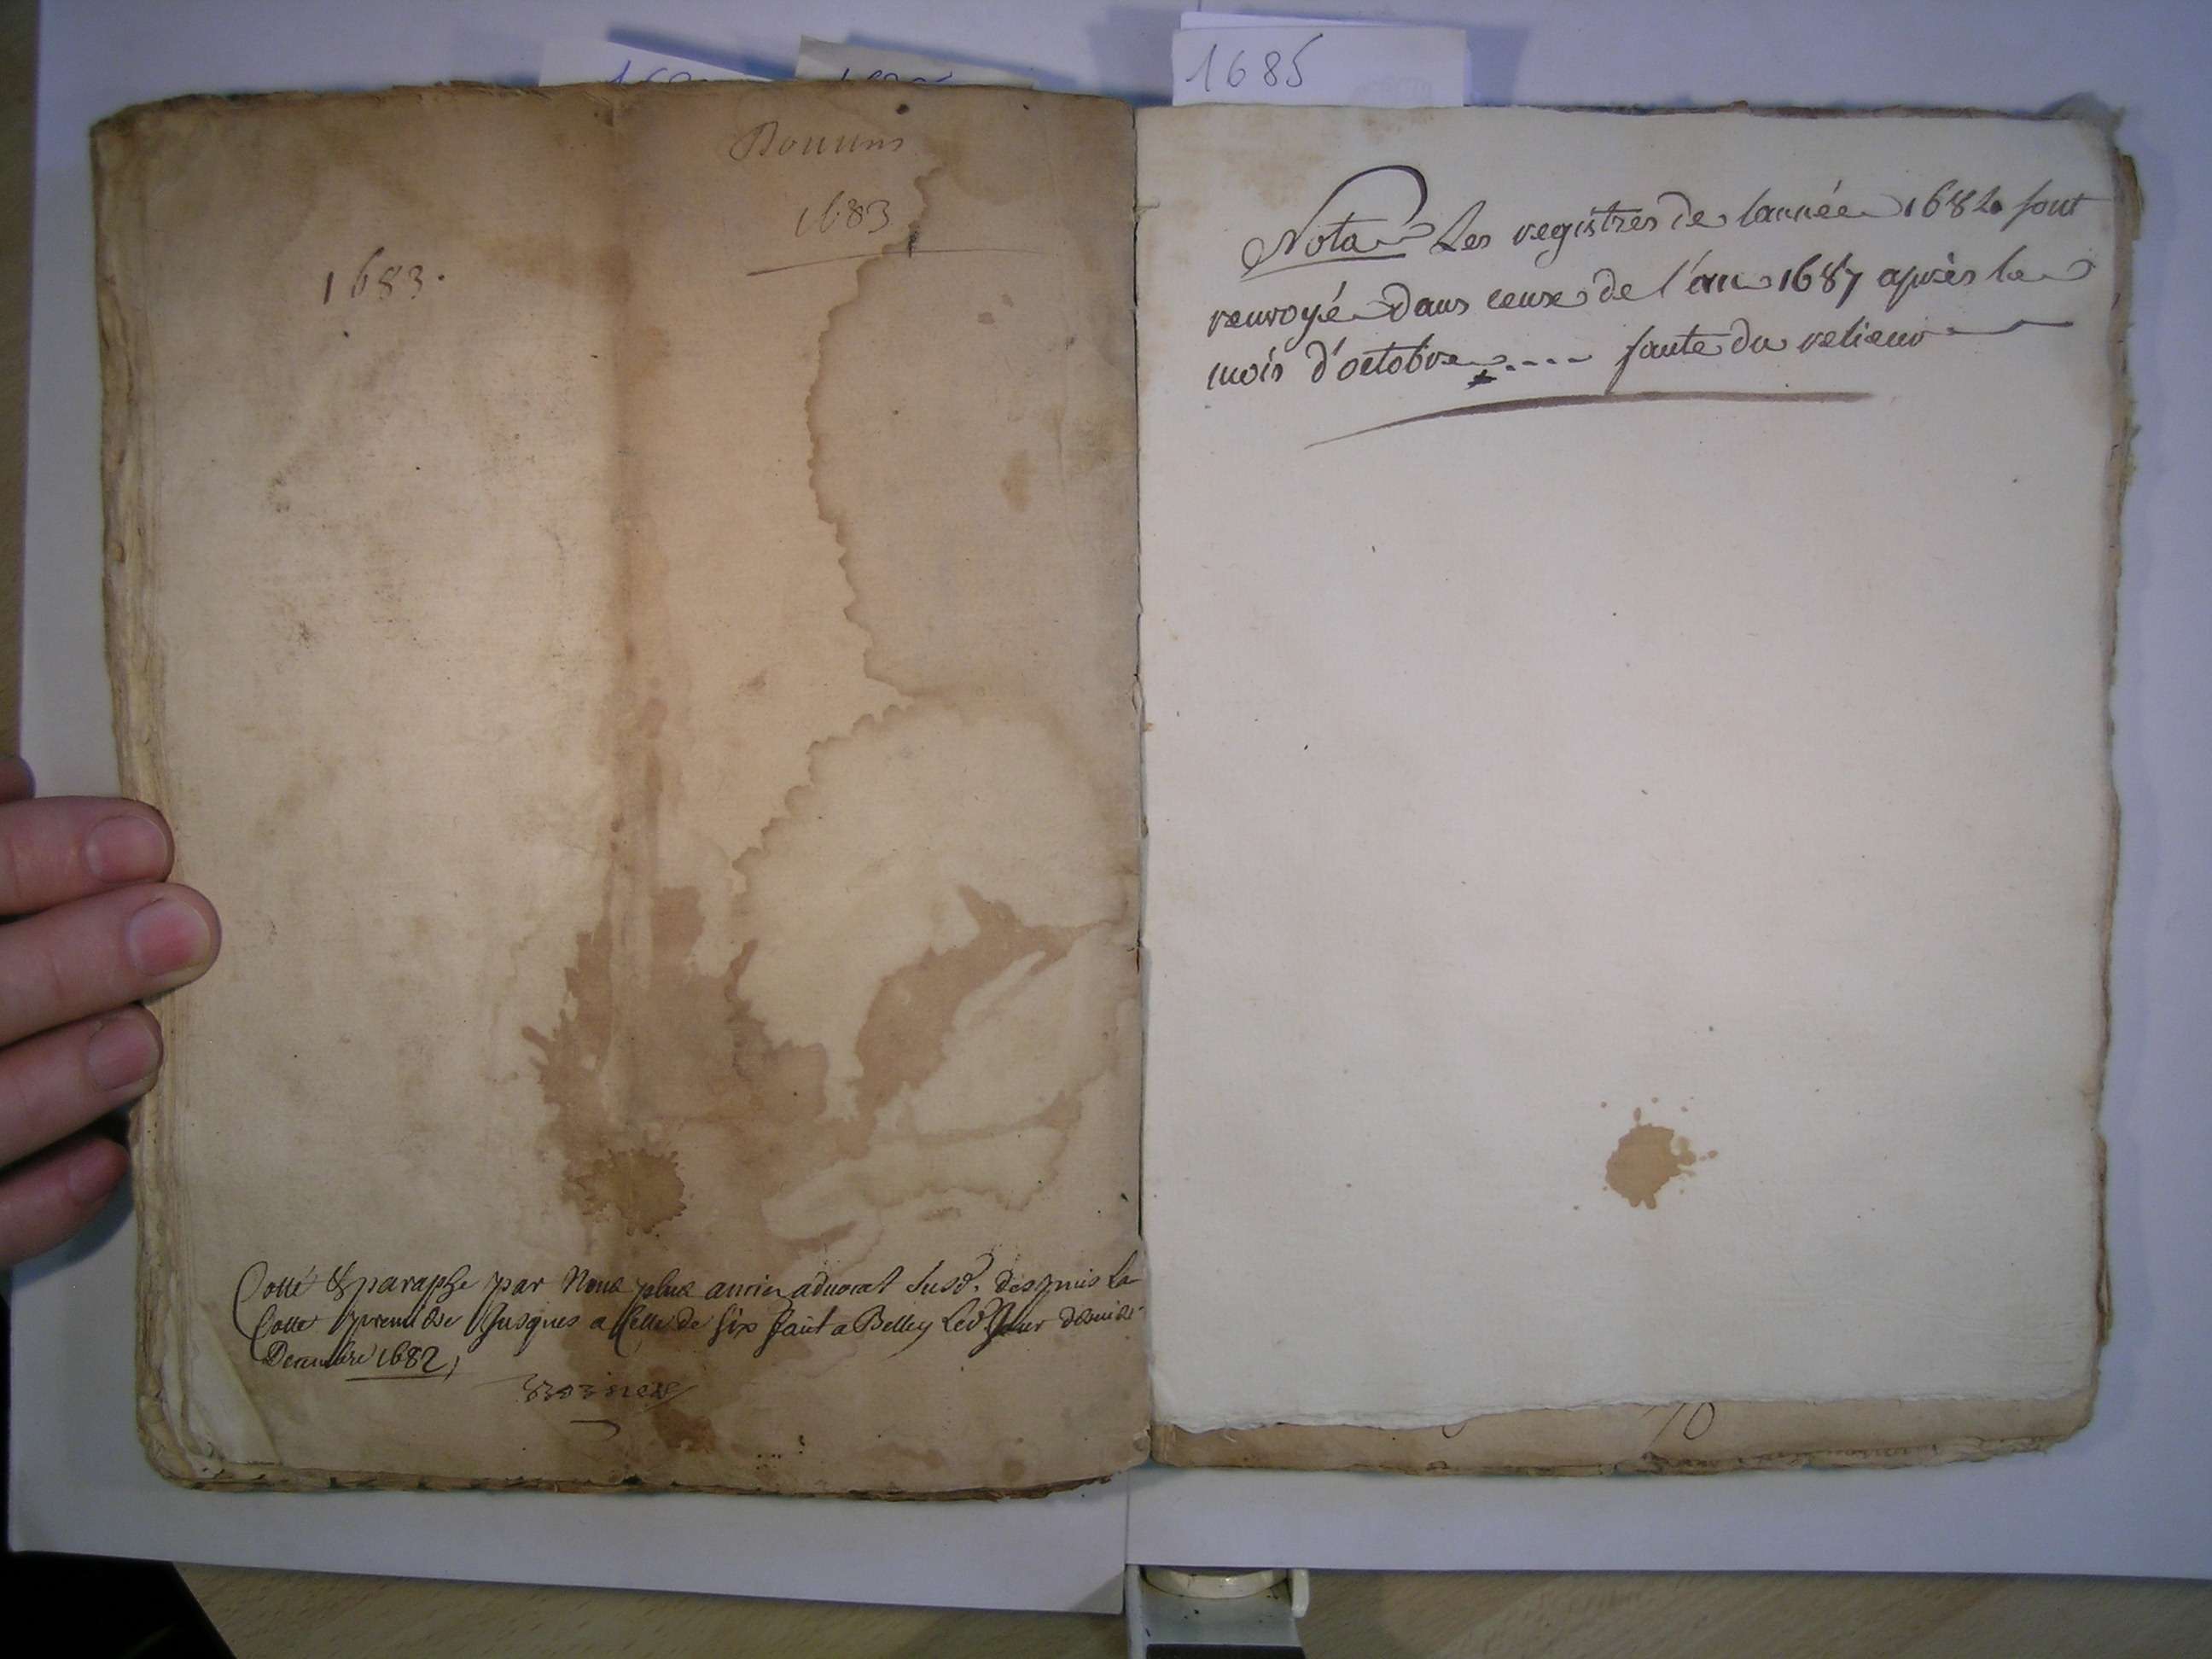 1685
1683
1683.
Cotté & paraphe par Nous plus ancien aduocat Susd. despuis la
Cotte premiere Jusques a celle de six fait a Belley Led Jour
Decembre 1682,
Nota Les registres de l'année 1684 sont
renvoyé dans ceux de l'an 1687 après le
mois d'octobre .... faute du relieur
10